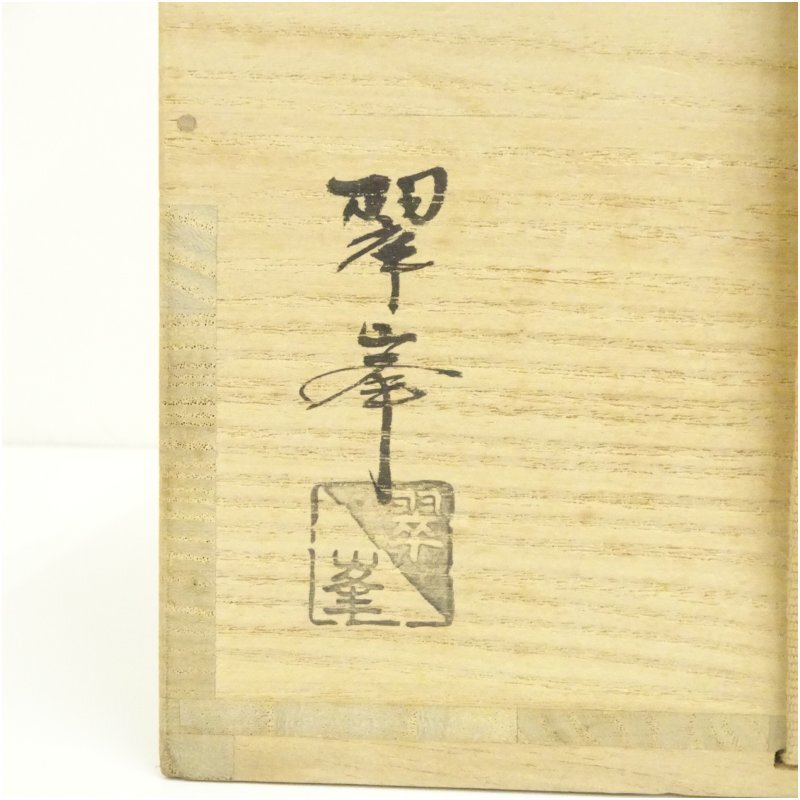 翠峯
翠
峯